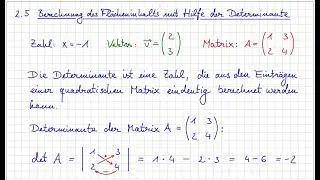 2.5 Berechnung des Flächeninhalts mit Hilfe der Determinante
Zahl: x = -1 Vektor: v⃗ = (2 3) Matrix: A = (1 3 2 4)
Die Determinante ist eine Zahl, die aus den Einträgen
einer quadratischen Matrix eindeutig berechnet werden
kann.
Determinante der Matrix A = (1 3 2 4) :
det A = |1 3 2 4| = 1 · 4 - 2 · 3 = 4 - 6 = -2